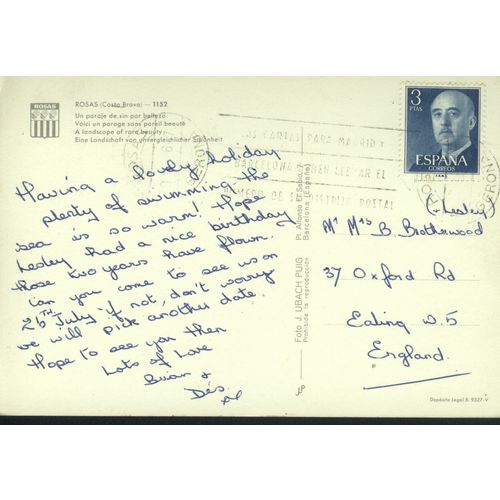 ROSAS
ROSAS (Costa Brava) — 1152
Un paraje de sin par belleza
Voici un parage sans pareil beauté
A landscape of rare beauty
Eine Landschaft von unvergleichlicher Schönheit
Having a lovely holiday
plenty of swimming the
sea is so warm! Hope
Lesley had a nice birthday
those two years have flown.
Can you come to see us on
26TH July - if not, don't worry
we will pick another date.
Hope to see you then
Lots of Love
Brian &
Des.
3
PTAS
ESPAÑA
CORREOS
CARTAS PARA MADRID Y
BARCELONA DEBEN LLEVAR EL
NUMERO DE SU DISTRITO POSTAL
Foto J. UBACH PUIG
Prohibida la reproducción
Barcelona (España)
(+ Lesley)
Mr Mrs B. Brotherwood
37 Oxford Rd
Ealing W.5
England.
Depósito Legal B. 9327-V